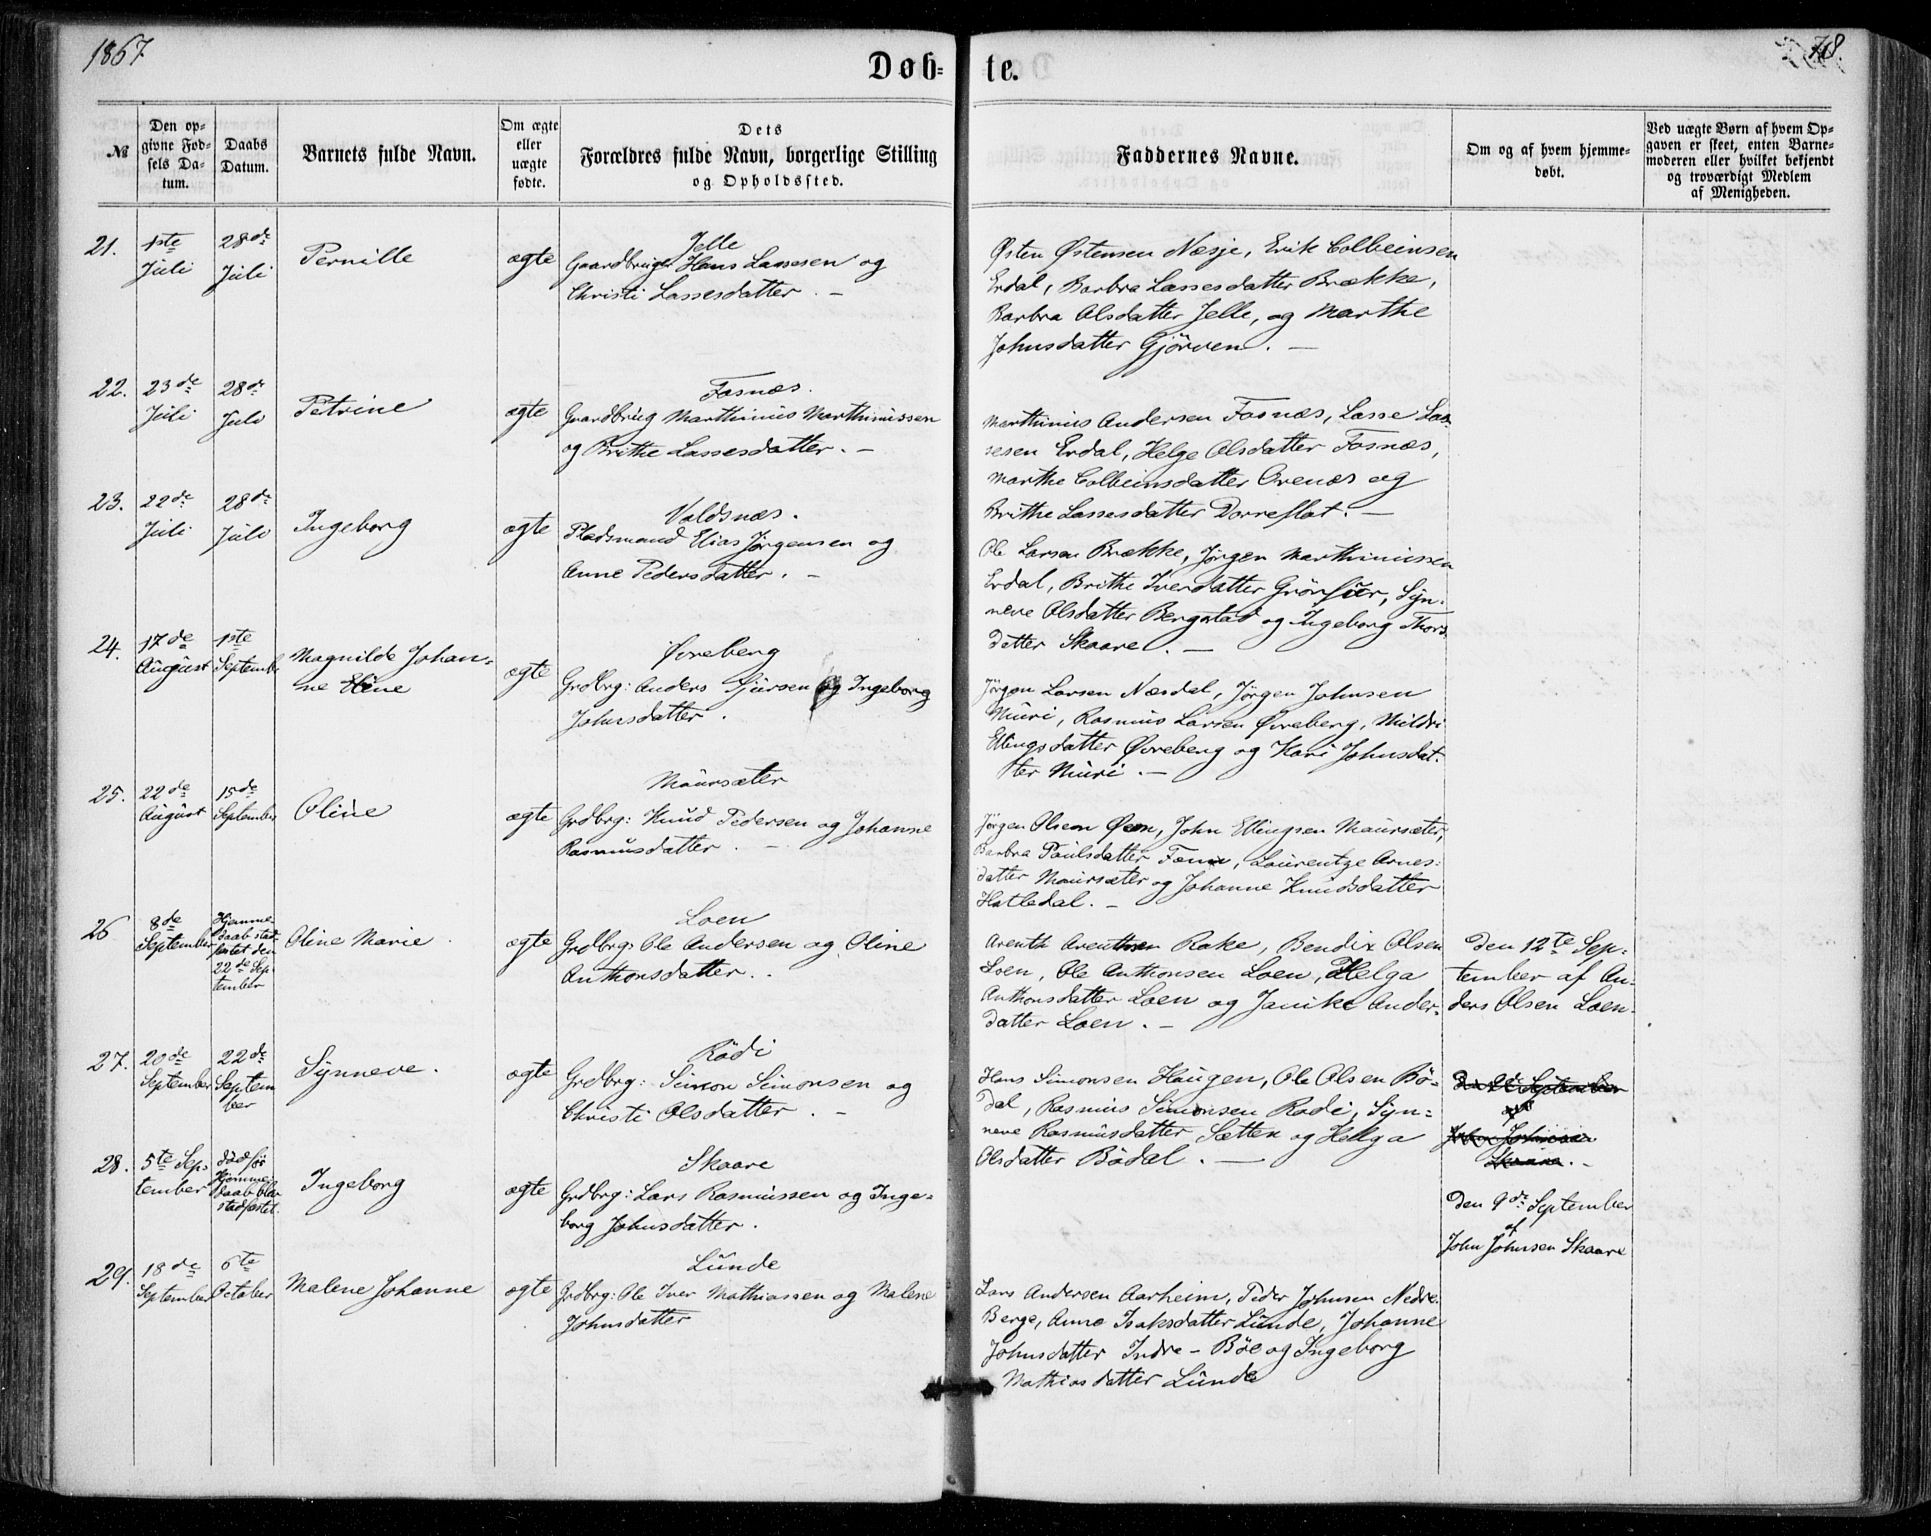 1867.
Døb-
te.
78.
№
Den op-
givne Fød-
sels Da-
tum.
Daabs
Datum.
Barnets fulde Navn.
Om ægte
eller
uægte
fødte.
Dets
Forældres fulde Navn, borgerlige Stilling
og Opholdssted.
Faddernes Navne.
Om og af hvem hjemme-
døbt.
Ved uægte Børn af hvem Op-
gaven er skeet, enten Barne-
moderen eller hvilket bekjendt
og troværdigt Medlem
af Menigheden.
21.
1ste
Juli
28de
Juli
Pernille
ægte
Jelle
Gaardbruger Hans Lassesen og
Christi Lassesdatter. —
Østen Østensen Næsje, Erik Colbeinsen
Erdal, Barbra Lassesdatter Brække,
Barbra Olsdatter Jelle, og Marthe
Johnsdatter Gjørven. —
22.
23de
Juli
28de
Juli
Petrine
ægte
Fosnæs.
Gaardbrug Marthinus Marthinussen
og Brithe Lassesdatter. —
Marthinus Andersen Fosnæs, Lasse Las-
sesen Erdal, Helge Olsdatter Fosnæs,
Marthe Colbeinsdatter Ovenæs og
Brithe Lassesdatter Dorreflot. —
23.
22de
Juli
28de
Juli
Ingeborg
ægte
Valdsnæs.
Pladsmand Elias Jørgensen og
Anne Pedersdatter. —
Ole Larsen Brække, Jørgen Marthinussen
Erdal, Brithe Iversdatter Grønfur, Syn-
neve Olsdatter Bergstad og Ingeborg Thors-
datter Skaare. —
24.
17de
August
1ste
September
Magnilde Johan-
ne Eline
ægte
Øvreberg
Grdbrg: Anders Sjursen og Ingeborg
Johnsdatter.
Jørgen Larsen Næsdal, Jørgen Johnsen
Muri, Rasmus Larsen Øvreberg, Mildri
Ellingsdatter Øvreberg og Kari Johnsdat-
ter Muri. —
25.
22de
August
15de
September
Oline
ægte
Maursæter
Grdbrg: Knud Pedersen og Johanne
Rasmusdatter. —
Jørgen Olsen Øen, John Ellingsen Maursæter,
Barbra Paulsdatter, Laurentze Arnes-
datter Maursæter og Johanne Knudsdatter
Hatledal. —
26
8de
September
Hjemme-
daab stad-
fæstet den
22de Sep-
tember
Oline Marie.
ægte
Loen
Grdbrg: Ole Andersen og Oline
Anthonsdatter.
Arenth Arenthsen Rake, Bendix Olsen
Loen, Ole Anthonsen Loen, Helga
Anthonsdatter Loen og Janike Anders-
datter Loen. —
Den 12te Sep-
tember af An-
ders Olsen Loen.
27.
20de
September
22de
Septem
ber
Synneve.
ægte
Rödi
Grdbrg: Simon Simonsen og
Christi Olsdatter. —
Hans Simonsen Haugen, Ole Olsen Bö-
dal, Rasmus Simonsen Rödi, Syn-
neve Rasmusdatter Sætten og Helga
Olsdatter Bödal. —
September
af
John Johnsen
Skaare. —
28.
5te Sep-
tember
død før
Hjemme-
daab blev
stadfæstet.
Ingeborg
ægte
Skaare
Grdbrg: Lars Rasmussen og Inge-
borg Johnsdatter.
Den 9de September
af
John Johnsen Skaare
29.
18de
September
6te
October
Malene Johanne
ægte
Lunde
Grdbrg: Ole Iver Mathiassen og Malene
Johnsdatter
Lars Andersen Aarheim, Peder Johnsen Nedre-
Berge, Anne Isaksdatter Lunde, Johanne
Johnsdatter Indre-Böe og Ingeborg
Mathiasdatter Lunde